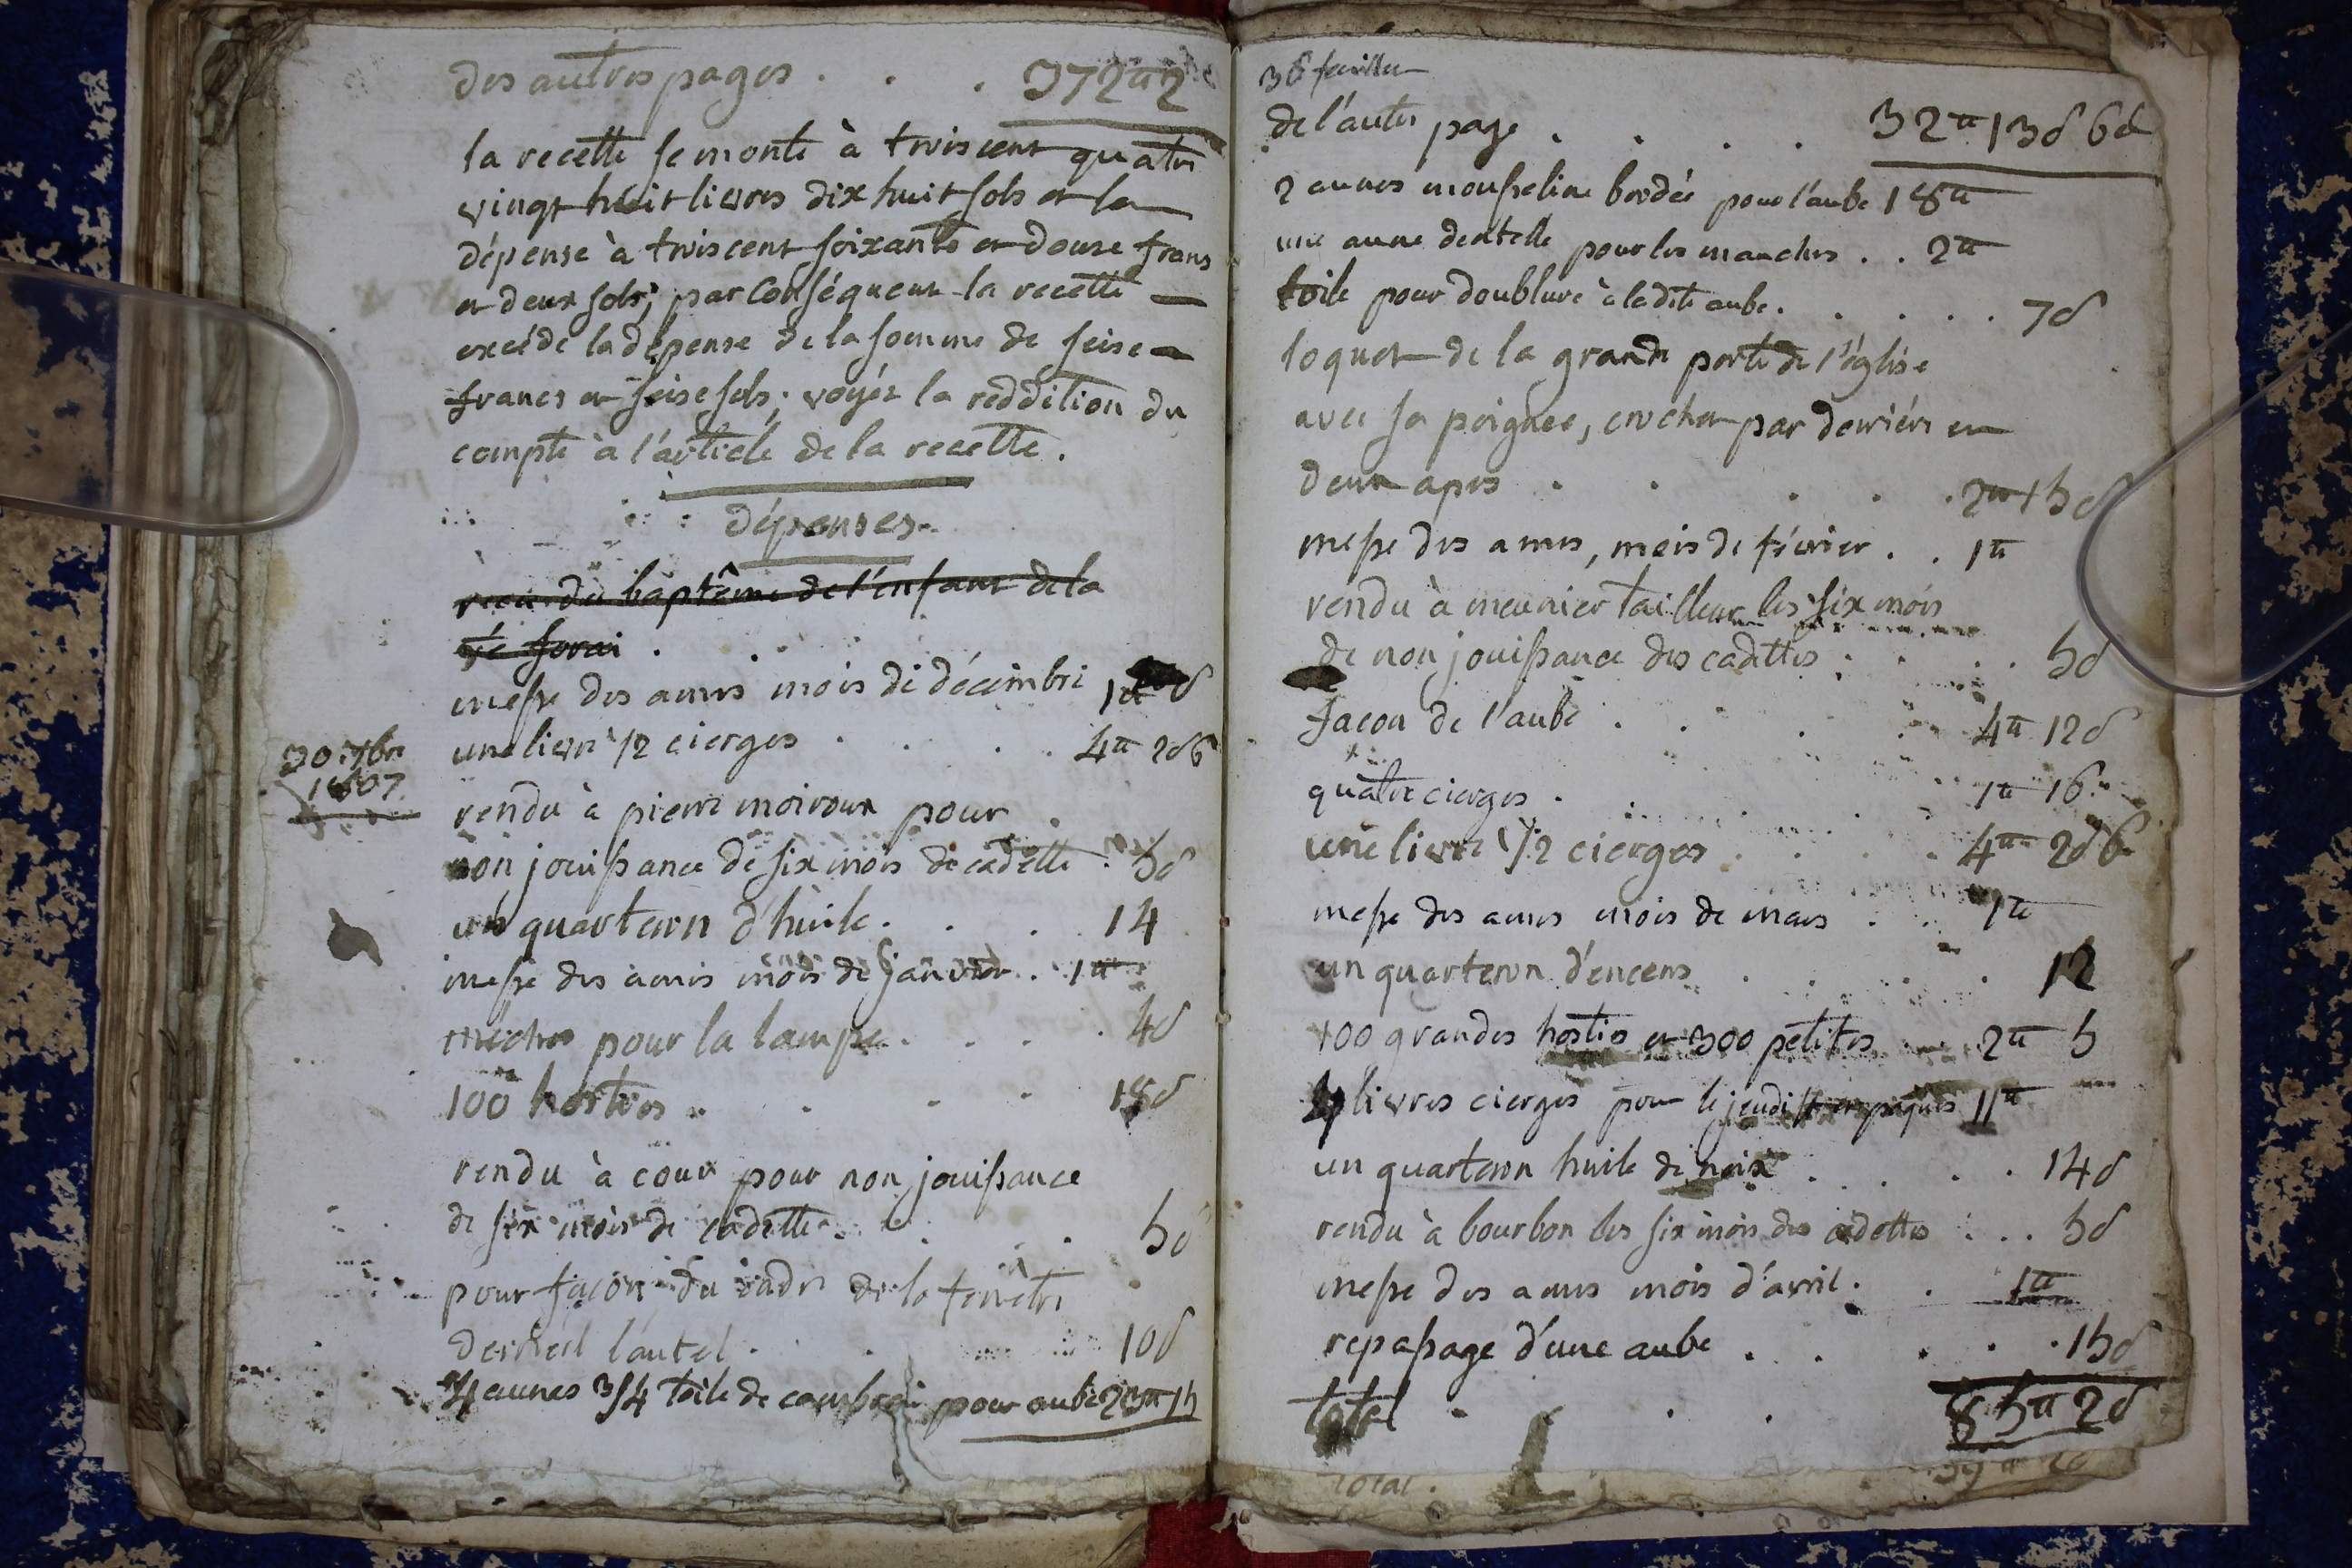 des autres pages . . . 372tt 2
la recette se monte à troiscent quatre
vingt huit livres dix huit sols et la
dépense à troiscent soixante et douse frans
et deux sols; par Conséquent la recette
excéde la dépense de la somme de seise
francs et seise sols; voyéz la reddition du
compte à l'article de la recette.
dépenses
recu du baptême de l'enfant de la
messe des ames mois de décembre 1tt
30 7bre
1807
une livre 1/2 cierges . . . . 4tt 2s 6
rendu à pierre moiroux pour
non jouissance de six mois de cadette . 5s
un quarteron d'huile . . . 14
messe des ames mois de janvier . 1tt
méches pour la lampe . . . . 4s
100 hosties . . . . 18s
rendu à cour pour non jouissance
de six mois de cadette . . . 5s
pour façon du cadre de la fenetre
derrier l'autel . . . 10s
4 aunes 3/4 toile de cambrai pour aube 23tt 15
36 feuillet
de l'autre page . . . . 32tt 13s 6d
2 aunes mousseline bordée pour l'aube 18tt
une aune dentelle pour les manches . . 2tt
toile pour doublure à ladite aube . . . . . 7s
loquet de la grande porte de l'église
avec sa poignee, crochet par derriére en
deux . . . . . 2tt 15s
messe des ames, mois de février . . 1tt
rendu à meunier tailleur les six mois
de non jouissance des cadettes . . . . 5s
facon de l'aube . . . . 4tt 12s
quatre cierges . . . 1tt 16
une livre 1/2 cierges . . . . 4tt 2s 6
messe des ames mois de mars . . 1tt
un quarteron d'encens . . . . . 12
100 grandes hosties et 300 petites . . . 2tt 5
4 livres cierges pour le jeudi st et pâques 11tt
un quarteron huile de noix . . . . . 14s
rendu à bourbon les six mois des cadettes . . . 5s
messe des ames mois d'avril . . 1tt
repassage d'une aube . . . . . 15s
total . . . 85tt 2s
total .